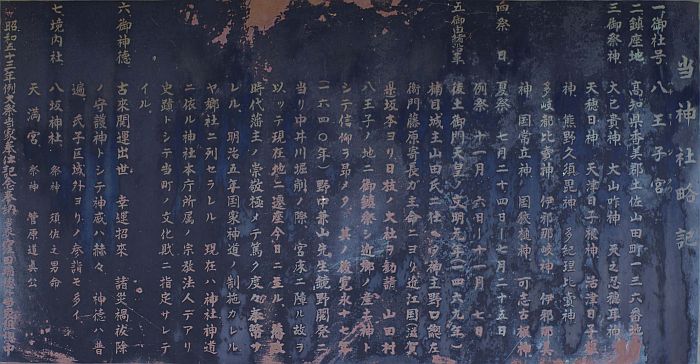 当神社略記
一御社号 八王子宮
二鎮座地 高知県香美郡土佐山田町一三六番地
三御祭神 大己貴神 大山咋神 天之忍穂耳神
天穂日神 天津日子根神 活津日子根
神 熊野久須毘神 多紀理比賣神
多岐都比賣神 伊邪那岐神 伊邪那美
神 国常立神 国狭槌神 可志古根神
四祭 日 夏祭 七月二十四日―七月二十五日
例祭 十一月 六日―十一月 七日
五御由緒沿革 後土御門天皇ノ文明元年(一四六九年)
楠目城主山田氏ニ仕ヘタ御主野口惣左
衛門藤原寄長が主命ニヨリ近江国滋賀
県坂本ヨリ日枝ノ大社ヲ勧請 山田村
八王子ノ地ニ御鎮祭シ近郷ノ産土神ト
シテ信仰ヲ昂メタ 其ノ後寛永十七年
(一六四〇年)野中兼山先生鏡野開発ニ
当リ中井川堀削ノ際 宮床ニ障ル故ヲ
以ッテ現在地ニ遷座今日ニ至ル 藩主
時代藩主ノ崇敬極メテ篤ク度々奉幣サ
レル 明治五年国家神道ノ制施カレル
ヤ郷社ニ列セラレル 現在ハ神社神道
ニ依ル神社本庁所属 宗教法人デアリ
史蹟トシテ当町ノ文化財ニ指定サレテ
イル
六御神徳 古来開運出世 幸運招来 諸災禍祓除
ノ守護神トシテ神威ハ赫々 神徳ハ普
遍 氏子区域外ヨリノ参詣モ多イ
七境内社 八坂神社 祭神 須佐之男命
天満宮 祭神 菅原道真公
昭和五十三年例大祭当家奉仕記念奉納